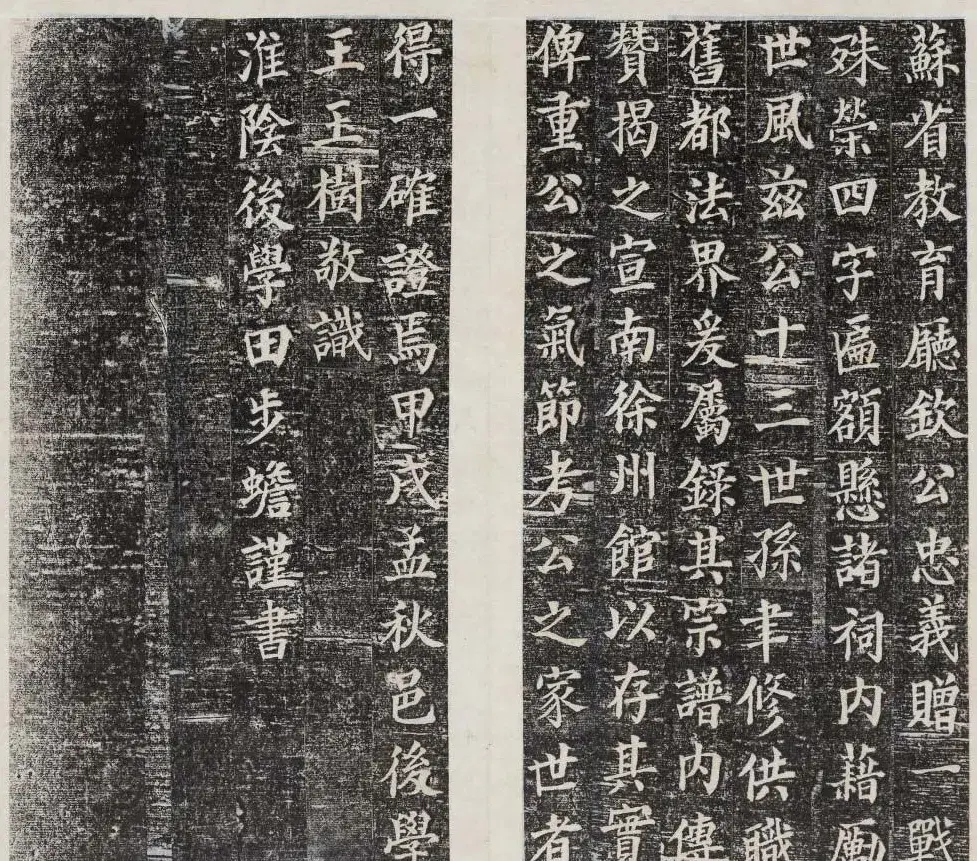 蘇省教育廳欽公忠義贈一戰
殊榮四字匾額懸諸祠内藉勵
世風兹公十三世孫聿修供職
舊都法界爰屬録其宗譜内傳
贊揭之宣南徐州館以存其實
俾重公之氣節考公之家世者
得一確證焉甲戌孟秋邑後學
王玉樹敬識
淮陰後學田步蟾謹書